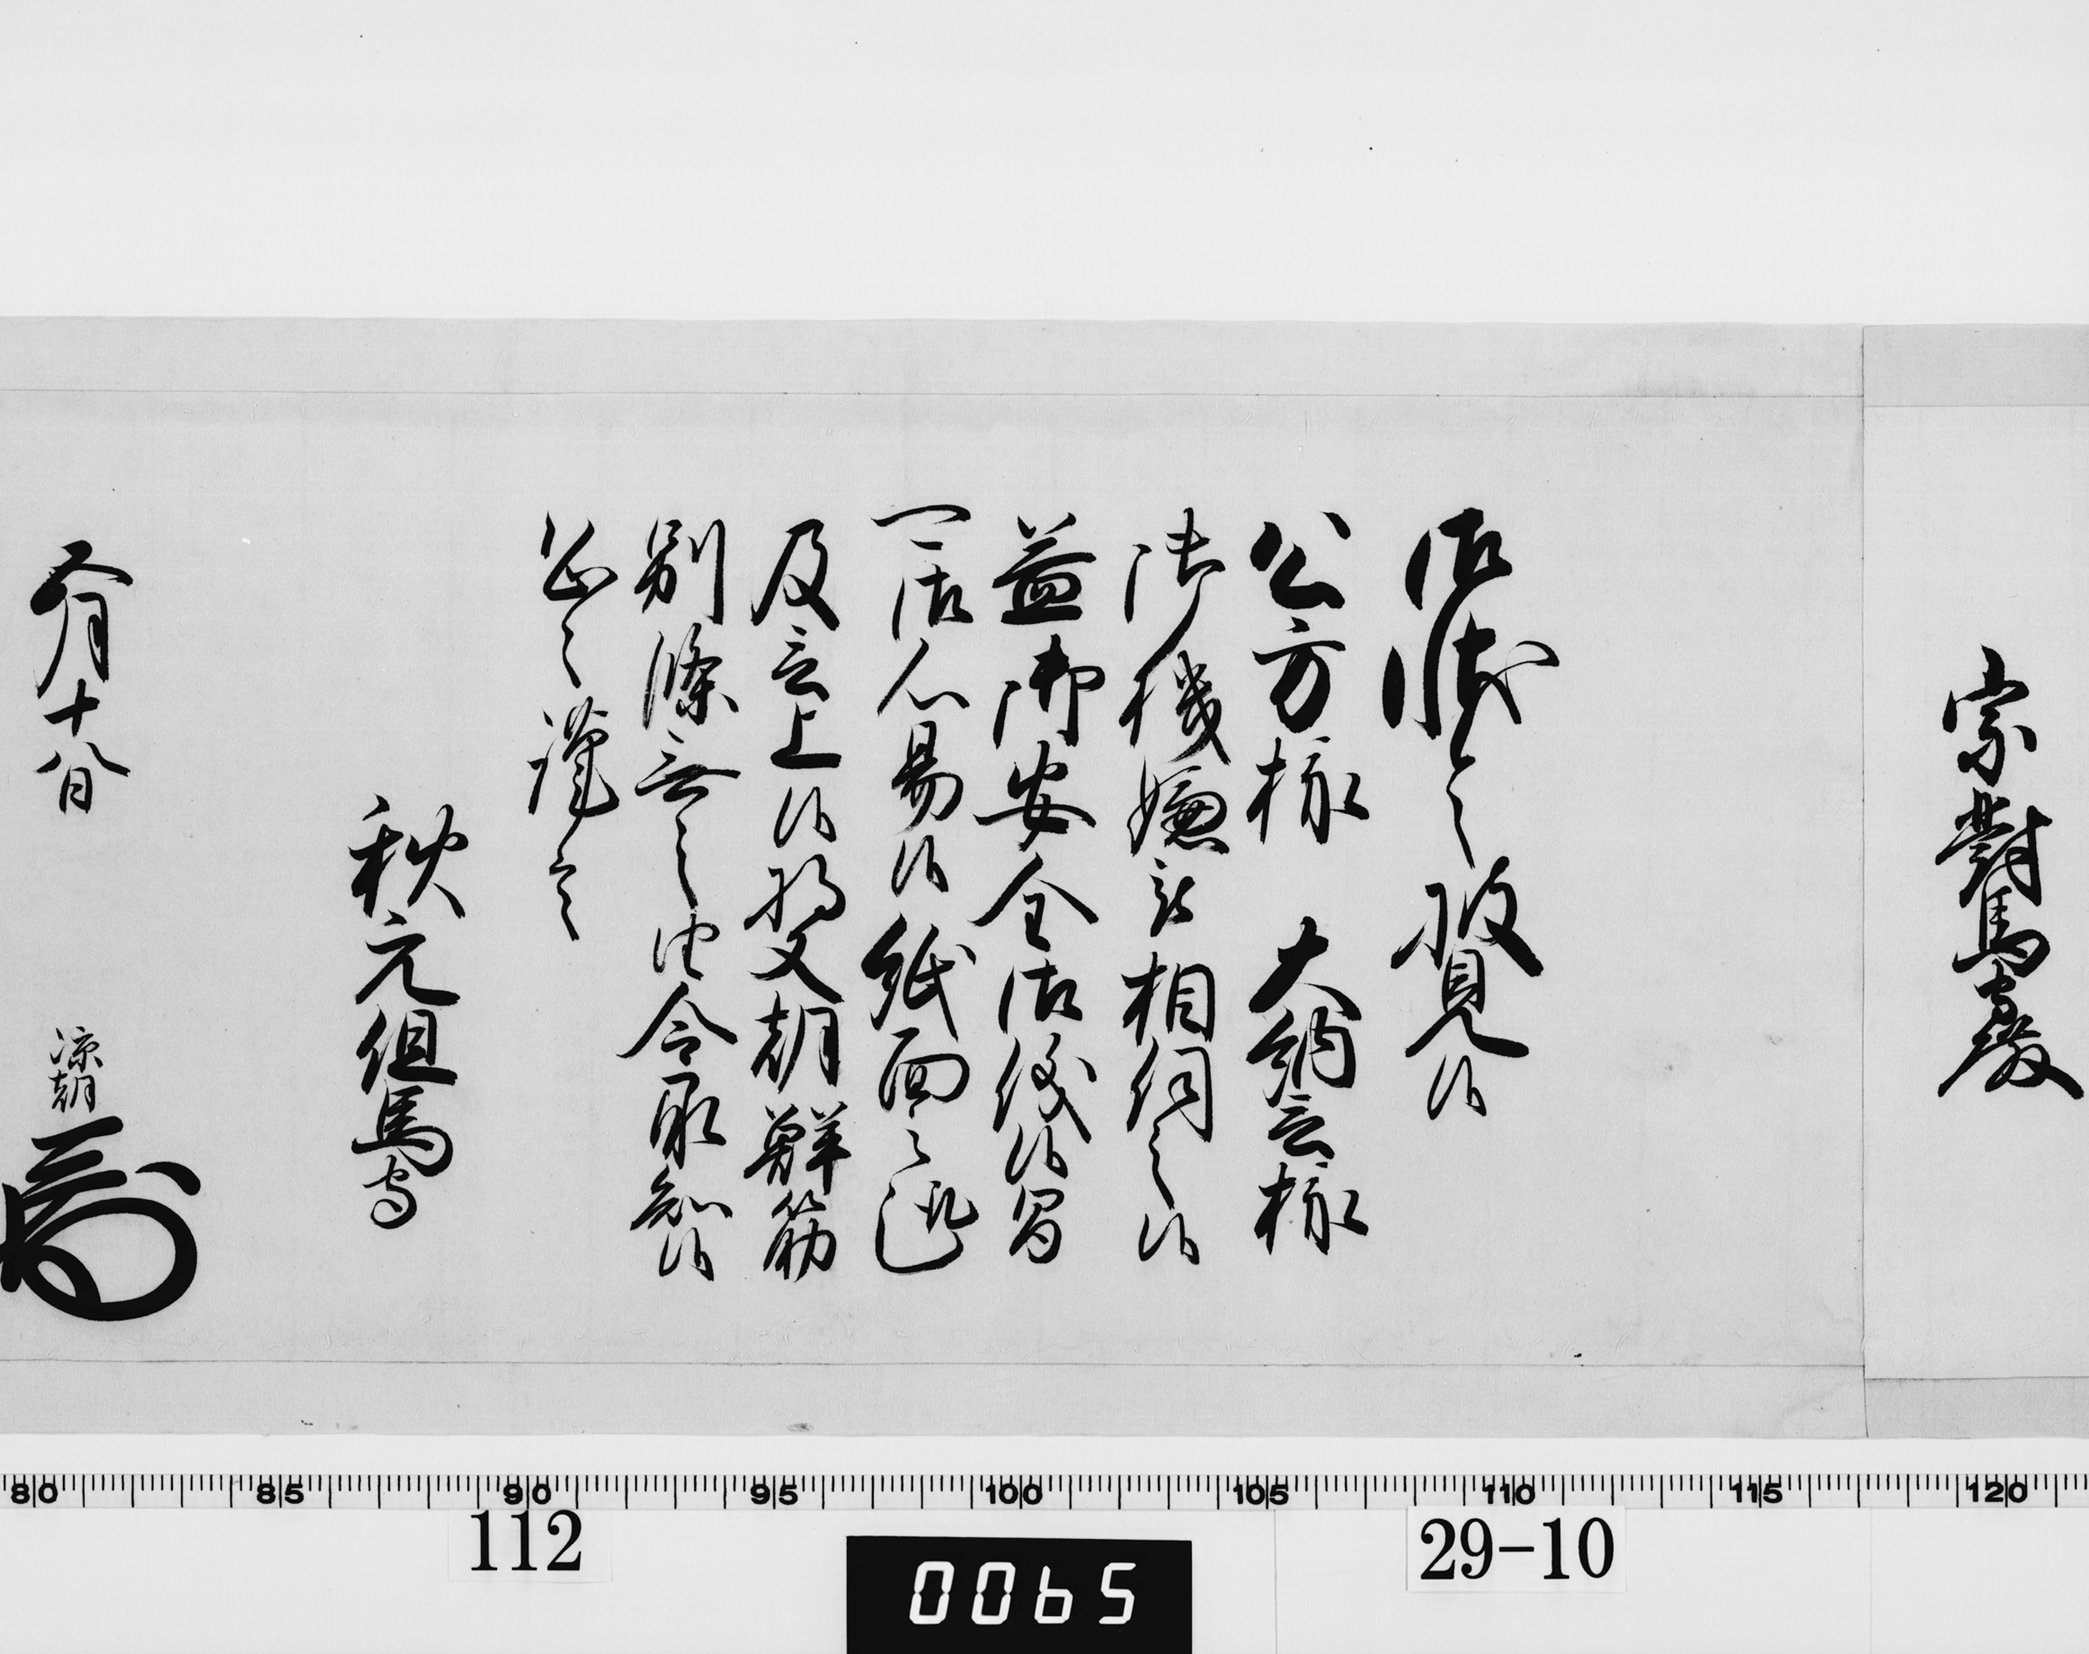 宗對馬守殿
御状令披見候
公方様 大納言様
御機嫌被相伺之候
益御安全御儀候間
可御心易候紙面之趣
及言上候将又朝鮮筋
別條無之由令承知候
恐々謹言
秋元但馬守
六月十八日
凉朝
80 85 90 95 100 105 110 115 120
112
0065
29-10